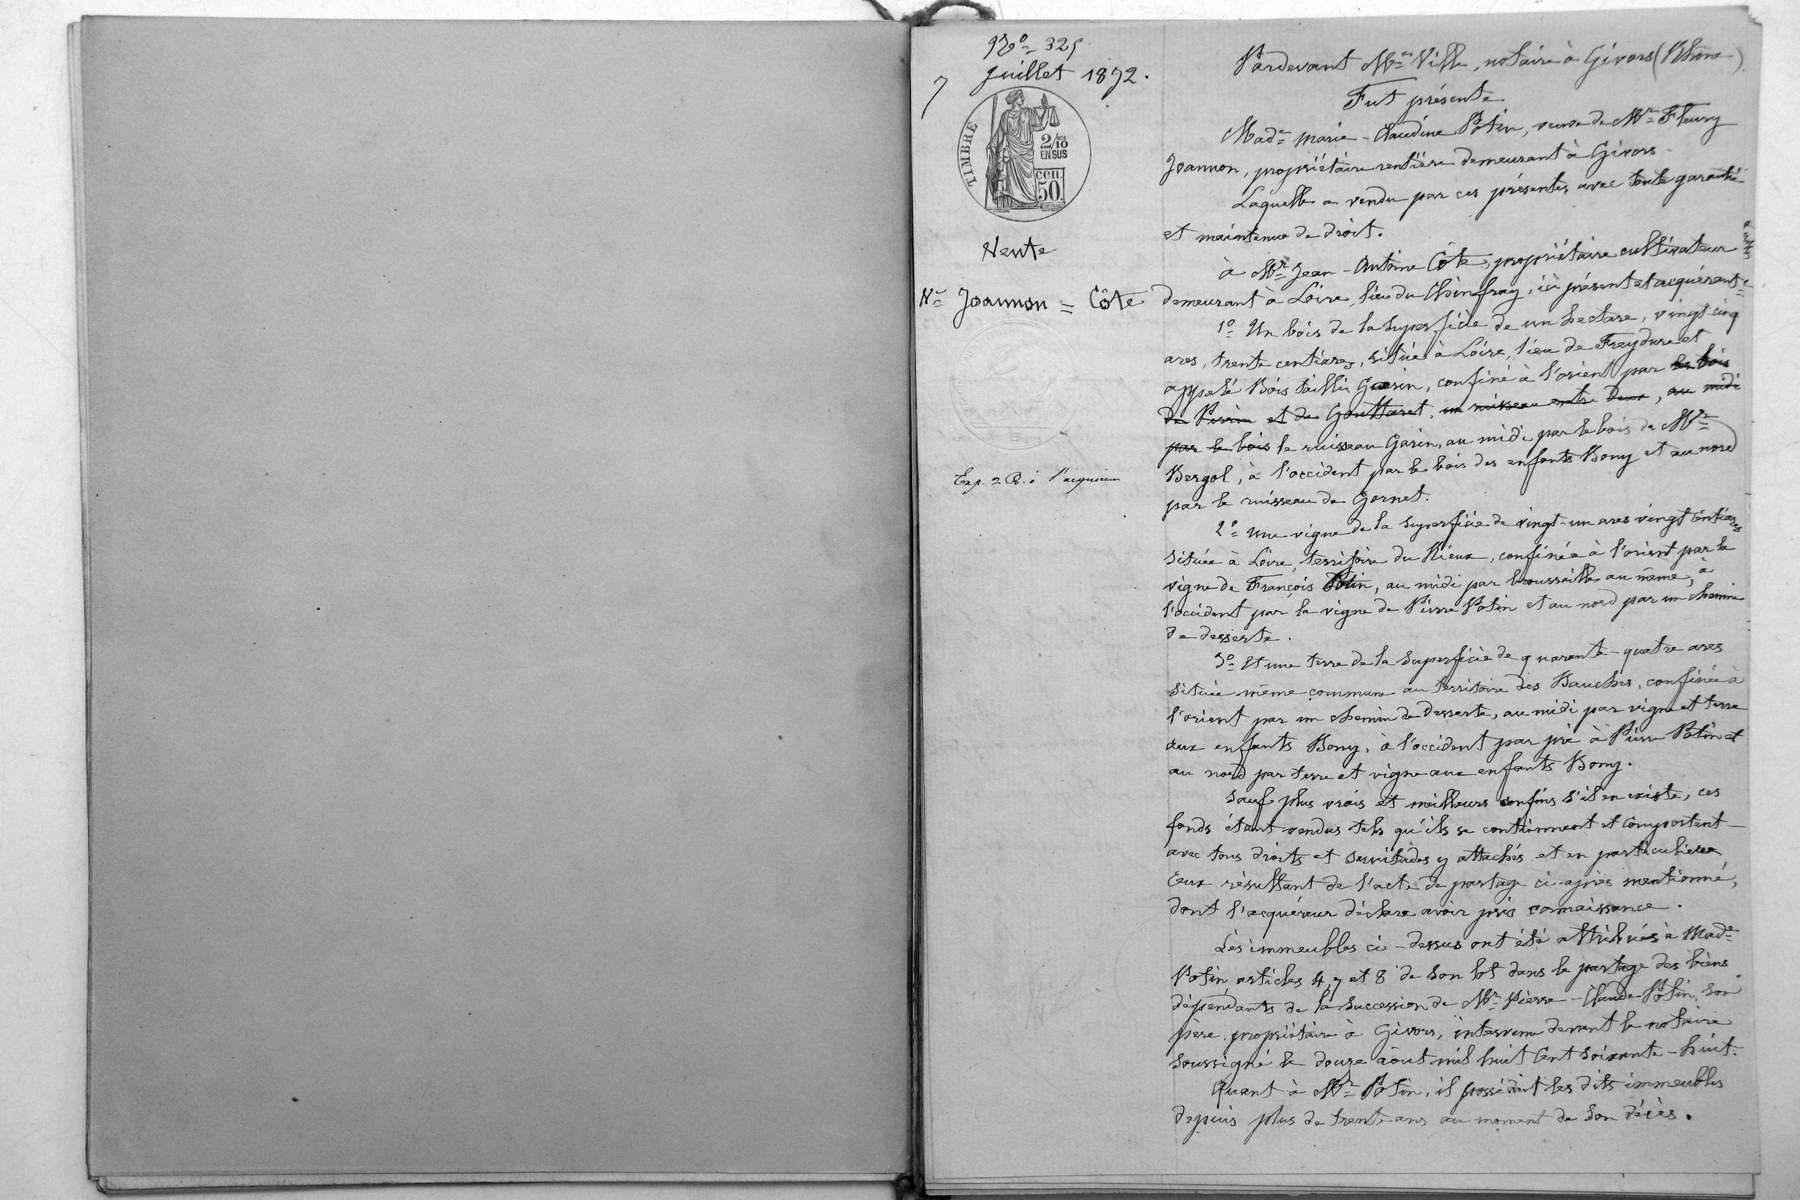 No 325
7 Juillet 1872.
TIMBRE
2/10
EN SUS
CEN.
50
Vente
Ve Joannon = Côte
Exp. 2 R. à l'acquéreur
Pardevant Me Ville, notaire à Givors (Rhône).
Fut présente
Made Marie-Claudine Potin, veuve de Mr Fleury
Joannon, propriétaire rentière demeurant à Givors.
Laquelle a vendu par ces présentes, avec toute garantie
et maintenue de droit.
à Mr Jean-Antoine Côte, propriétaire cultivateur
demeurant à Loire, lieu du Chinfray, ici présent et acquérant
1o Un bois de la superficie de un hectare, vingt cinq
ares, trente centiares, située à Loire, lieu de Freydure et
appelé Bois taillis Garin, confiné à l'orient par les bois
de Perrin et de Gouttaret, un ruisseau entre deux, au midi
par le bois le ruisseau Garin, au midi par le bois de Mr
Bergol, à l'occident par le bois des enfants Bony et au nord
par le ruisseau de Gornet.
2o une vigne de la superficie de vingt-un ares vingt centiares
située à Loire, territoire du Rieux, confinée à l'orient par la
vigne de François Potin, au midi par broussaille au même, à
l'occident par la vigne de Pierre Potin et au nord par un chemin
de desserte.
3o Et une terre de la superficie de quarante-quatre ares
située même commune au territoire des Bauches, confinée à
l'orient par un chemin de desserte, au midi par vigne et terre
aux enfants Bony, à l'occident par pré à Pierre Potin et
au nord par terre et vigne aux enfants Bony.
Sauf plus vrais et meilleurs confins s'il en existe, ces
fonds étant vendus tels qu'ils se contiennent et comportent
avec tous droits et servitudes y attachés et en particulier
ceux résultant de l'acte de partage ci-après mentionné,
dont l'acquéreur déclare avoir pris connaissance.
Les immeubles ci-dessus ont été attribués à Made
Potin articles 4, 7 et 8 de son lot dans le partage des biens
dépendants de la succession de Mr Pierre-Claude Potin, son
père, propriétaire à Givors, intervenu devant le notaire
soussigné le douze août mil huit cent soixante-huit.
Quant à Mr Potin, il possédait les dits immeubles
depuis plus de trente ans au moment de son décès.